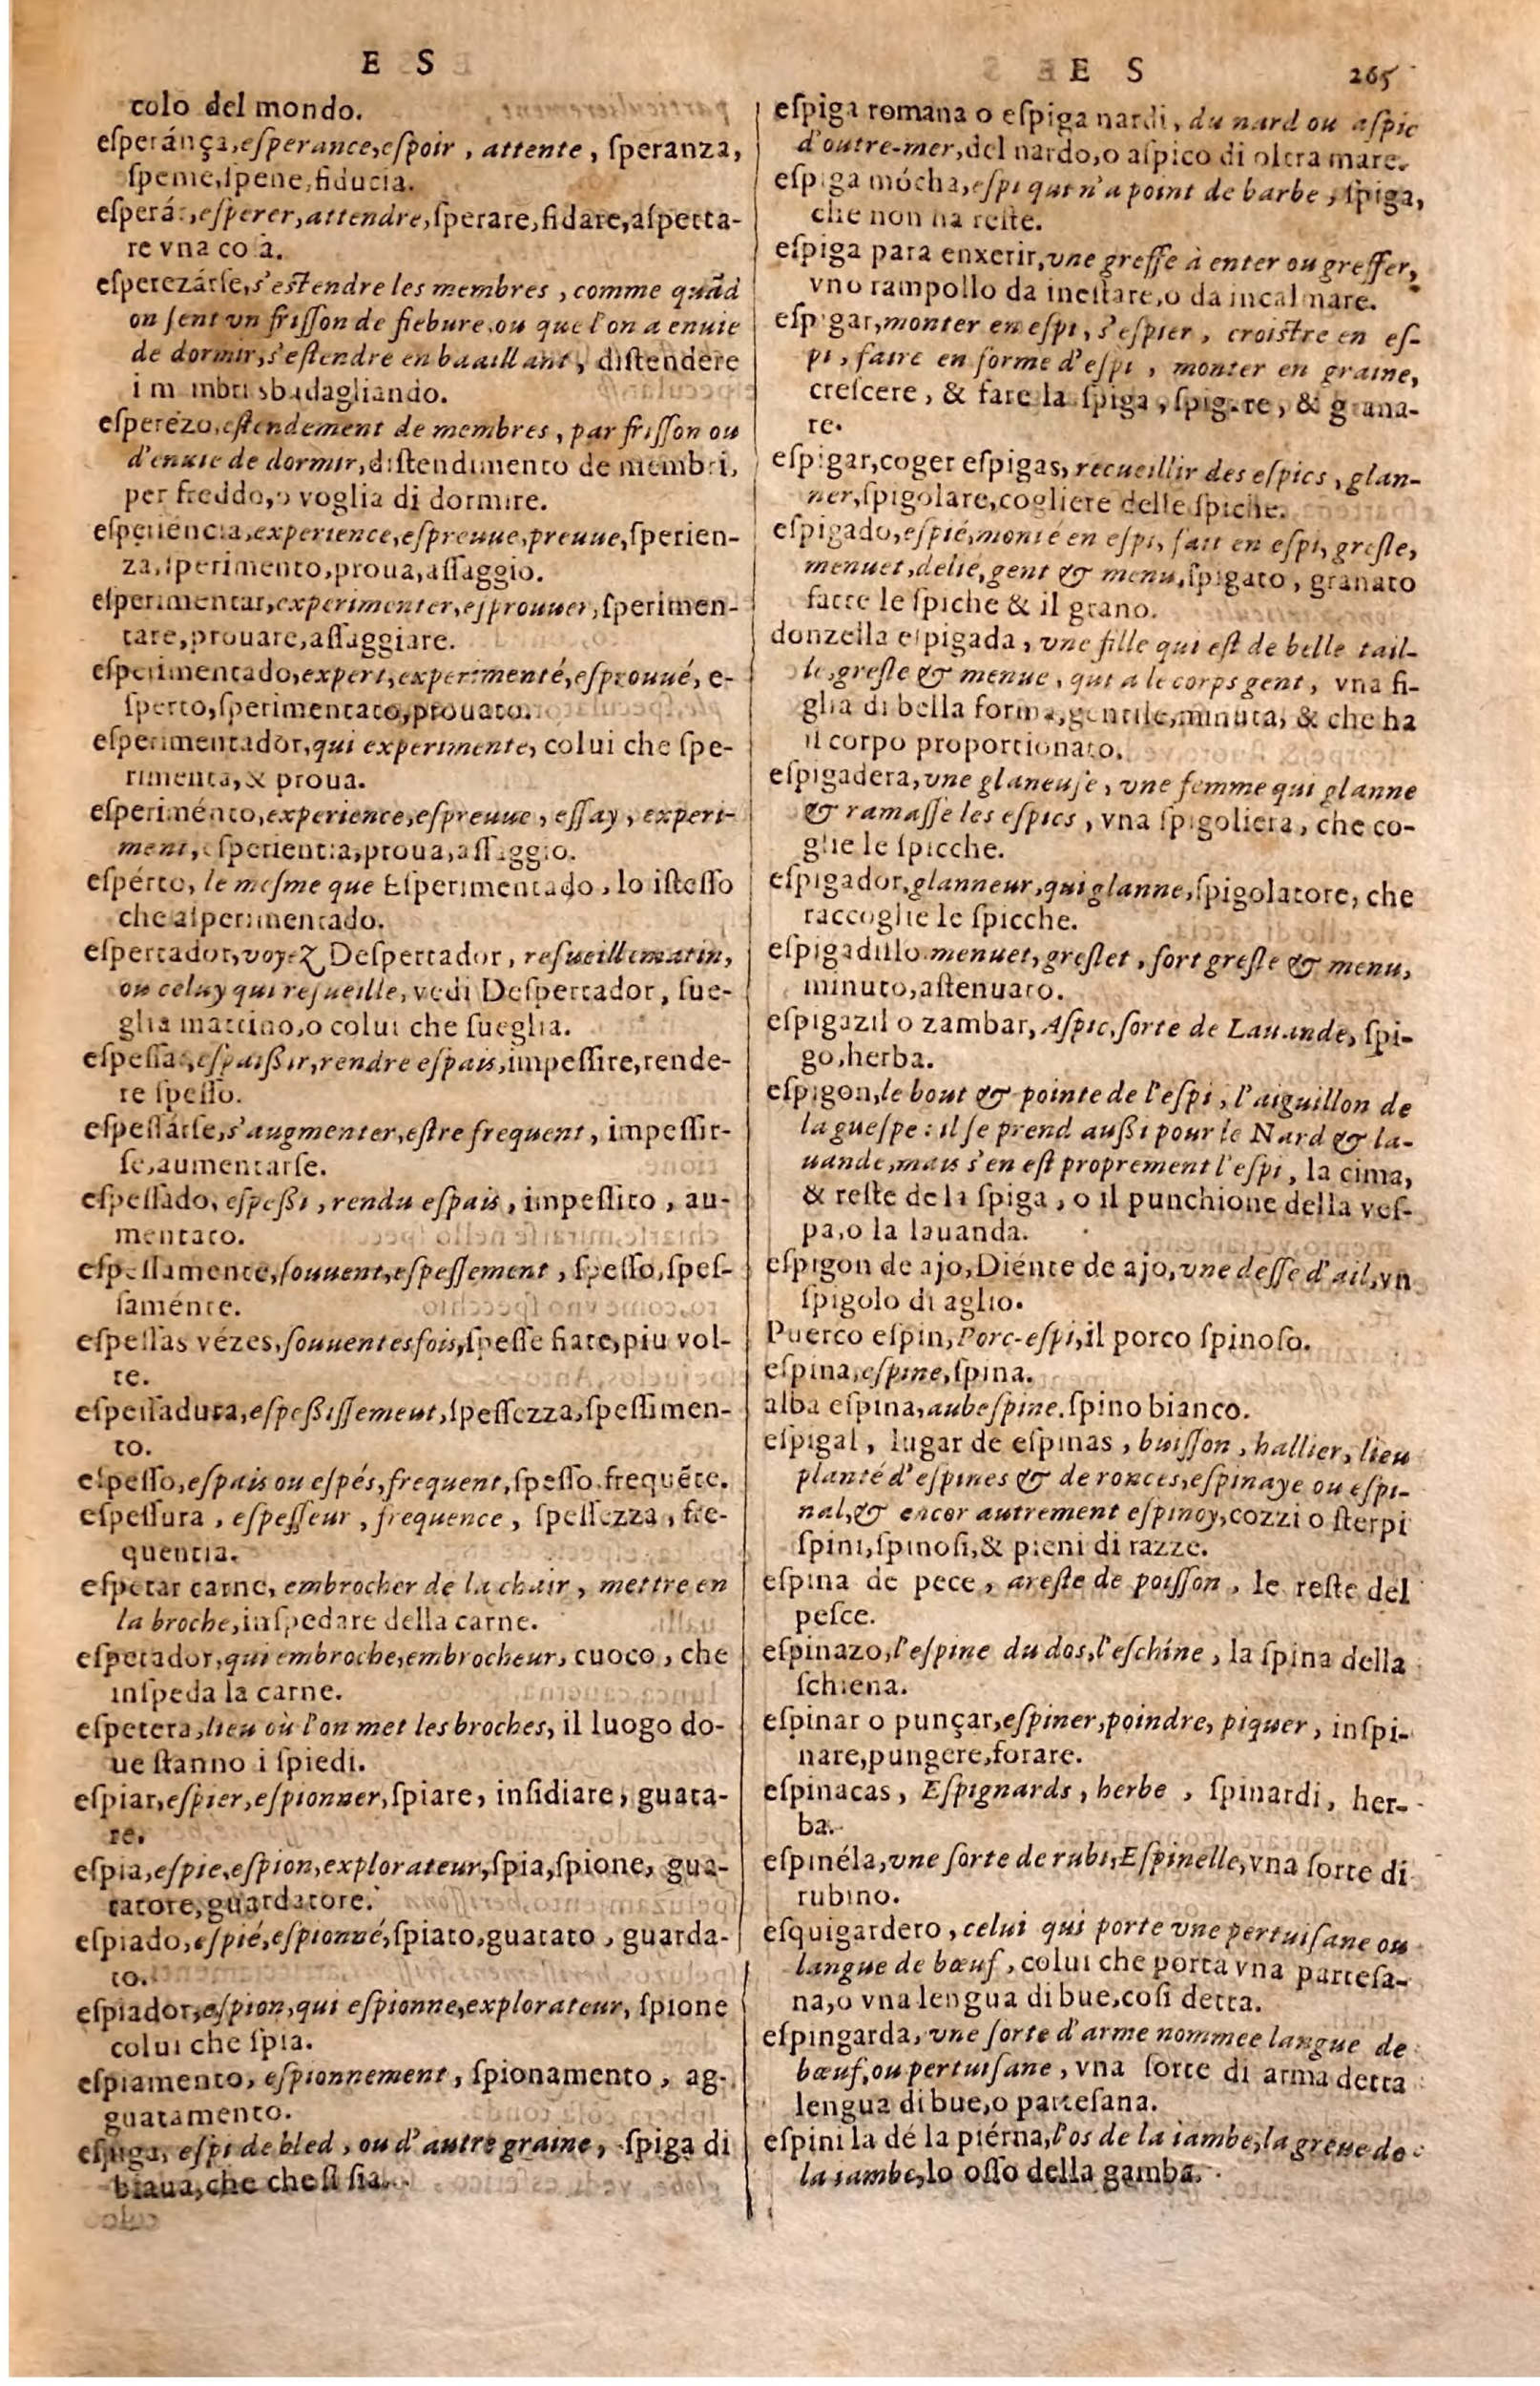 E S
colo del mondo.
eſperánça, eſperance, eſpoir, attente, ſperanza,
ſpeme, ſpene, fiducia.
eſperár, eſperer, attendre, ſperare, fidare, aſpetta-
re vna coſa.
eſperezárſe, s'eſtendre les membres, comme quãd
on ſent vn friſſon de fiebure, ou que l'on a enuie
de dormir, s'eſtendre en baaillant, diſtendere
i membri sbadagliando.
eſperézo, eſtendement de membres, par friſſon ou
d'enuie de dormir, diſtendimento de membri,
per freddo, o voglia di dormire.
eſperiéncia, experience, eſpreuue, preuue, ſperien-
za, ſperimento, proua, aſſaggio.
eſperimentar, experimenter, eſprouuer, ſperimen-
tare, prouare, aſſaggiare.
eſperimentado, expert, experimenté, eſprouué, e-
ſperto, ſperimentato, prouato.
eſperimentador, qui experimente, colui che ſpe-
rimenta, & proua.
eſperiménto, experience, eſpreuue, eſſay, experi-
ment, eſperientia, proua, aſſaggio.
eſpérto, le meſme que Eſperimentado, lo iſteſſo
che aſperimentado.
eſpertador, voyez Deſpertador, reſueillematin,
ou celuy qui reſueille, vedi Deſpertador, ſue-
glia mattino, o colui che ſueglia.
eſpeſſar, eſpaißir, rendre eſpais, impeſſire, rende-
re ſpeſſo.
eſpeſſárſe, s'augmenter, eſtre frequent, impeſſir-
ſe, aumentarſe.
eſpeſſado, eſpeßi, rendu eſpais, impeſſito, au-
mentato.
eſpeſſamente, ſouuent, eſpeſſement, ſpeſſo, ſpeſ-
ſaménte.
eſpeſſas vézes, ſouuentesfois, ſpeſſe fiate, piu vol-
te.
eſpeſſadura, eſpeßiſſement, ſpeſſezza, ſpeſſimen-
to.
eſpeſſo, eſpais ou eſpés, frequent, ſpeſſo, frequẽte.
eſpeſſura, eſpeſſeur, frequence, ſpeſſezza, fre-
quentia.
eſpetar carne, embrocher de la chair, mettre en
la broche, inſpedare della carne.
eſpetador, qui embroche, embrocheur, cuoco, che
inſpeda la carne.
eſpetera, lieu où l'on met les broches, il luogo do-
ue ſtanno i ſpiedi.
eſpiar, eſpier, eſpionner, ſpiare, inſidiare, guata-
re.
eſpia, eſpie, eſpion, explorateur, ſpia, ſpione, gua-
tatore, guardatore.
eſpiado, eſpié, eſpionné, ſpiato, guatato, guarda-
to.
eſpiador, eſpion, qui eſpionne, explorateur, ſpione
colui che ſpia.
eſpiamento, eſpionnement, ſpionamento, ag-
guatamento.
eſpiga, eſpi de bled, ou d'autre graine, ſpiga di
biaua, che che ſi ſia.
E S 265
eſpiga romana o eſpiga nardi, du nard ou aſpic
d'outre-mer, del nardo, o aſpico di oltra mare.
eſpiga mócha, eſpi qui n'a point de barbe, ſpiga,
che non ha reſte.
eſpiga para enxerir, vne greffe à enter ou greffer,
vno rampollo da ineſtare, o da incalmare.
eſpigar, monter en eſpi, s'eſpier, croiſtre en eſ-
pi, faire en forme d'eſpi, monter en graine,
creſcere, & fare la ſpiga, ſpigare, & grana-
re.
eſpigar, coger eſpigas, recueillir des eſpics, glan-
ner, ſpigolare, cogliere delle ſpiche.
eſpigado, eſpié, monté en eſpi, fait en eſpi, greſle,
menuet, delié, gent & menu, ſpigato, granato
fatte le ſpiche & il grano.
donzella eſpigada, vne fille qui eſt de belle tail-
le, greſle & menue, qui a le corps gent, vna fi-
glia di bella forma, gentile, minuta, & che ha
il corpo proportionato.
eſpigadera, vne glaneuſe, vne femme qui glanne
& ramaſſe les eſpics, vna ſpigoliera, che co-
glie le ſpicche.
eſpigador, glanneur, qui glanne, ſpigolatore, che
raccoglie le ſpicche.
eſpigadillo menuet, greſlet, fort greſle & menu,
minuto, aſtenuato.
eſpigazil o zambar, Aſpic, ſorte de Lauande, ſpi-
go, herba.
eſpigon, le bout & pointe de l'eſpi, l'aiguillon de
la gueſpe: il ſe prend außi pour le Nard & la-
uande, mais s'en eſt proprement l'eſpi, la cima,
& reſte de la ſpiga, o il punchione della veſ-
pa, o la lauanda.
eſpigon de ajo, Diénte de ajo, vne deſſe d'ail, vn
ſpigolo di aglio.
Puerco eſpin, Porc-eſpi, il porco ſpinoſo.
eſpina, eſpine, ſpina.
alba eſpina, aubeſpine, ſpino bianco.
eſpigal, lugar de eſpinas, buiſſon, hallier, lieu
planté d'eſpines & de ronces, eſpinaye ou eſpi-
nal, & encor autrement eſpinoy, cozzi o ſterpi
ſpini, ſpinoſi, & pieni di razze.
eſpina de pece, areſte de poiſſon, le reſte del
peſce.
eſpinazo, l'eſpine du dos, l'eſchine, la ſpina della
ſchiena.
eſpinar o punçar, eſpiner, poindre, piquer, inſpi-
nare, pungere, forare.
eſpinacas, Eſpignards, herbe, ſpinardi, her-
ba.
eſpinéla, vne ſorte de rubi, Eſpinelle, vna ſorte di
rubino.
eſquigardero, celui qui porte vne pertuiſane ou
langue de bœuf, colui che porta vna parteſa-
na, o vna lengua di bue, coſi detta.
eſpingarda, vne ſorte d'arme nommee langue de
bœuf, ou pertuiſane, vna ſorte di arma detta
lengua di bue, o parteſana.
eſpini la dé la piérna, l'os de la iambe, la greue de
la iambe, lo oſſo della gamba.